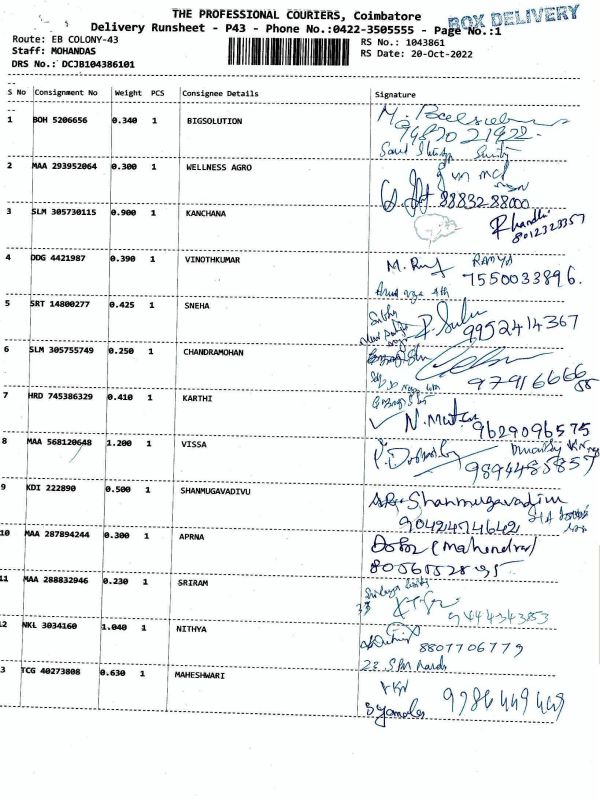 THE PROFESSIONAL COURIERS, Coimbatore
BOX DELIVERY
Delivery Runsheet - P43 - Phone No.:0422-3505555 - Page No.:1
Route: EB COLONY-43 RS No.: 1043861
Staff: MOHANDAS RS Date: 20-Oct-2022
DRS No.: DCJB104386101
S No Consignment No Weight PCS Consignee Details Signature
1 BOH 5206656 0.340 1 BIGSOLUTION
2 MAA 293952064 0.300 1 WELLNESS AGRO
8883288000
3 SLM 305730115 0.900 1 KANCHANA
8012323357
4 DDG 4421987 0.390 1 VINOTHKUMAR
RAMYA
7550033896.
5 SRT 14800277 0.425 1 SNEHA
9952414367
6 SLM 305755749 0.250 1 CHANDRAMOHAN
7 HRD 745386329 0.410 1 KARTHI
9629096575
8 MAA 568120648 1.200 1 VISSA
9894485857
9 KDI 222890 0.500 1 SHANMUGAVADIVU
Shanmugavadivu
10 MAA 287894244 0.300 1 APRNA
(Mahendran)
11 MAA 288832946 0.230 1 SRIRAM
9444343853
12 NKL 3034160 1.040 1 NITHYA
8807706779
3 TCG 40273808 0.630 1 MAHESHWARI
VKN
9786449449